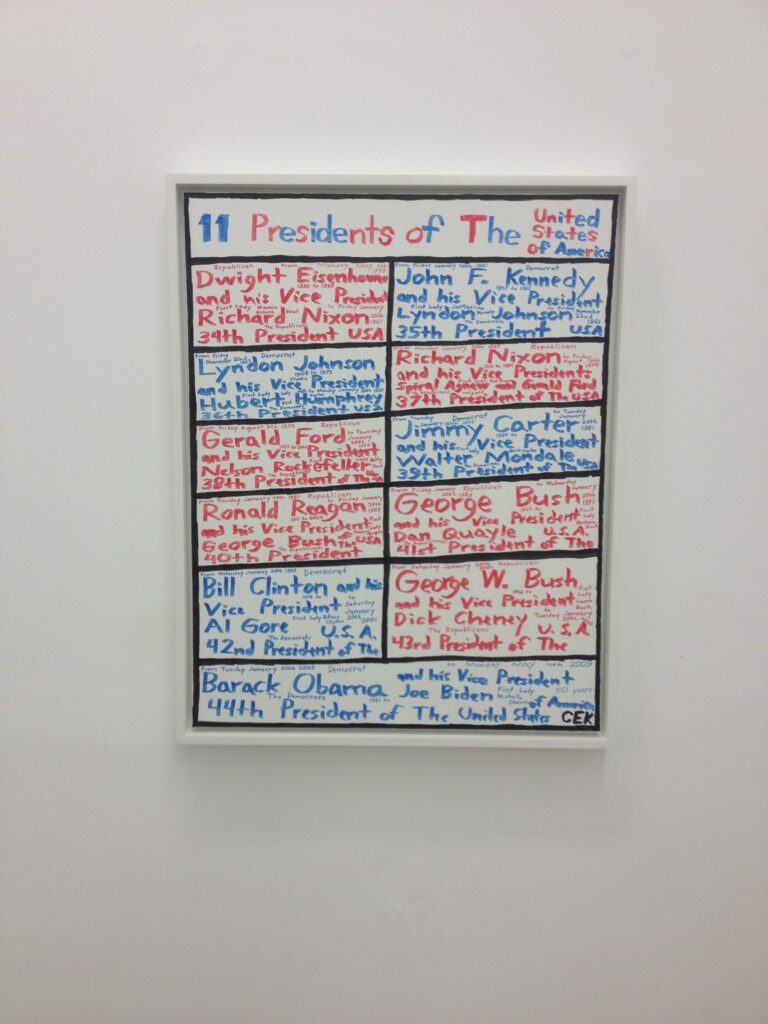 11 Presidents of The United
States
of America
Republican From Monday May 4th
1959
Dwight Eisenhower
1890 to 1969
and his Vice President
First Lady Mamie to Friday January
Richard Nixon 20th
1961
The Republicans
34th President USA
From Friday January 20th 1961 Democrat
John F. Kennedy
1917 to 1963
and his Vice President
First Lady to Friday November
Lyndon Johnson 22nd
1963
The Democrats
35th President USA
From Friday
November 22nd Democrat
Lyndon Johnson
1908 to 1973
and his Vice President
First Lady to Monday January 20th 1969
Hubert Humphrey
The Democrats
36th President USA
From Monday January 20th 1969 Republican
Richard Nixon to Friday
August
1913 to 1994
and his Vice Presidents
Spiral Agnew and Gerald Ford
37th President of The USA
From Friday August 9th 1974 Republican
Gerald Ford to Thursday
January
20th
and his Vice President
Nelson Rockefeller
The Republicans
38th President of The USA
From Thursday Democrat to Tuesday
January 20th 1977 January
20th
Jimmy Carter 1981
and his Vice President
Walter Mondale
The Democrats
39th President of The USA
From Tuesday January 20th 1981 Republican to Friday January
Ronald Reagan 20th
1989
1911 to 2004
and his Vice President First
Lady
George Bush of The USA
The Republicans
40th President
From Friday January Republican to Wednesday
20th 1989 January
George Bush 20th
1993
and his Vice President First
Lady
Barbara
Bush
Dan Quayle U.S.A.
The Republicans
41st President of The
From Wednesday January 20th 1993 Democrat
Bill Clinton and his
1946 to
Vice President Saturday
January
First Lady Hillary 20th
Clinton 2001
Al Gore U.S.A.
The Democrats
42nd President of The
From Saturday January 20th, Republican
George W. Bush
1946 to
First
Lady
Laura
Bush
and his Vice President
Dick Cheney Tuesday January
20th
The Republicans U.S.A.
43rd President of The
From Tuesday January 20th 2009 Democrat to Monday May 4th 2009
Barack Obama and his Vice President
The Democrats 1961 to Joe Biden First Lady 50 years
Michelle
Obama of America
44th President of The United States CEK